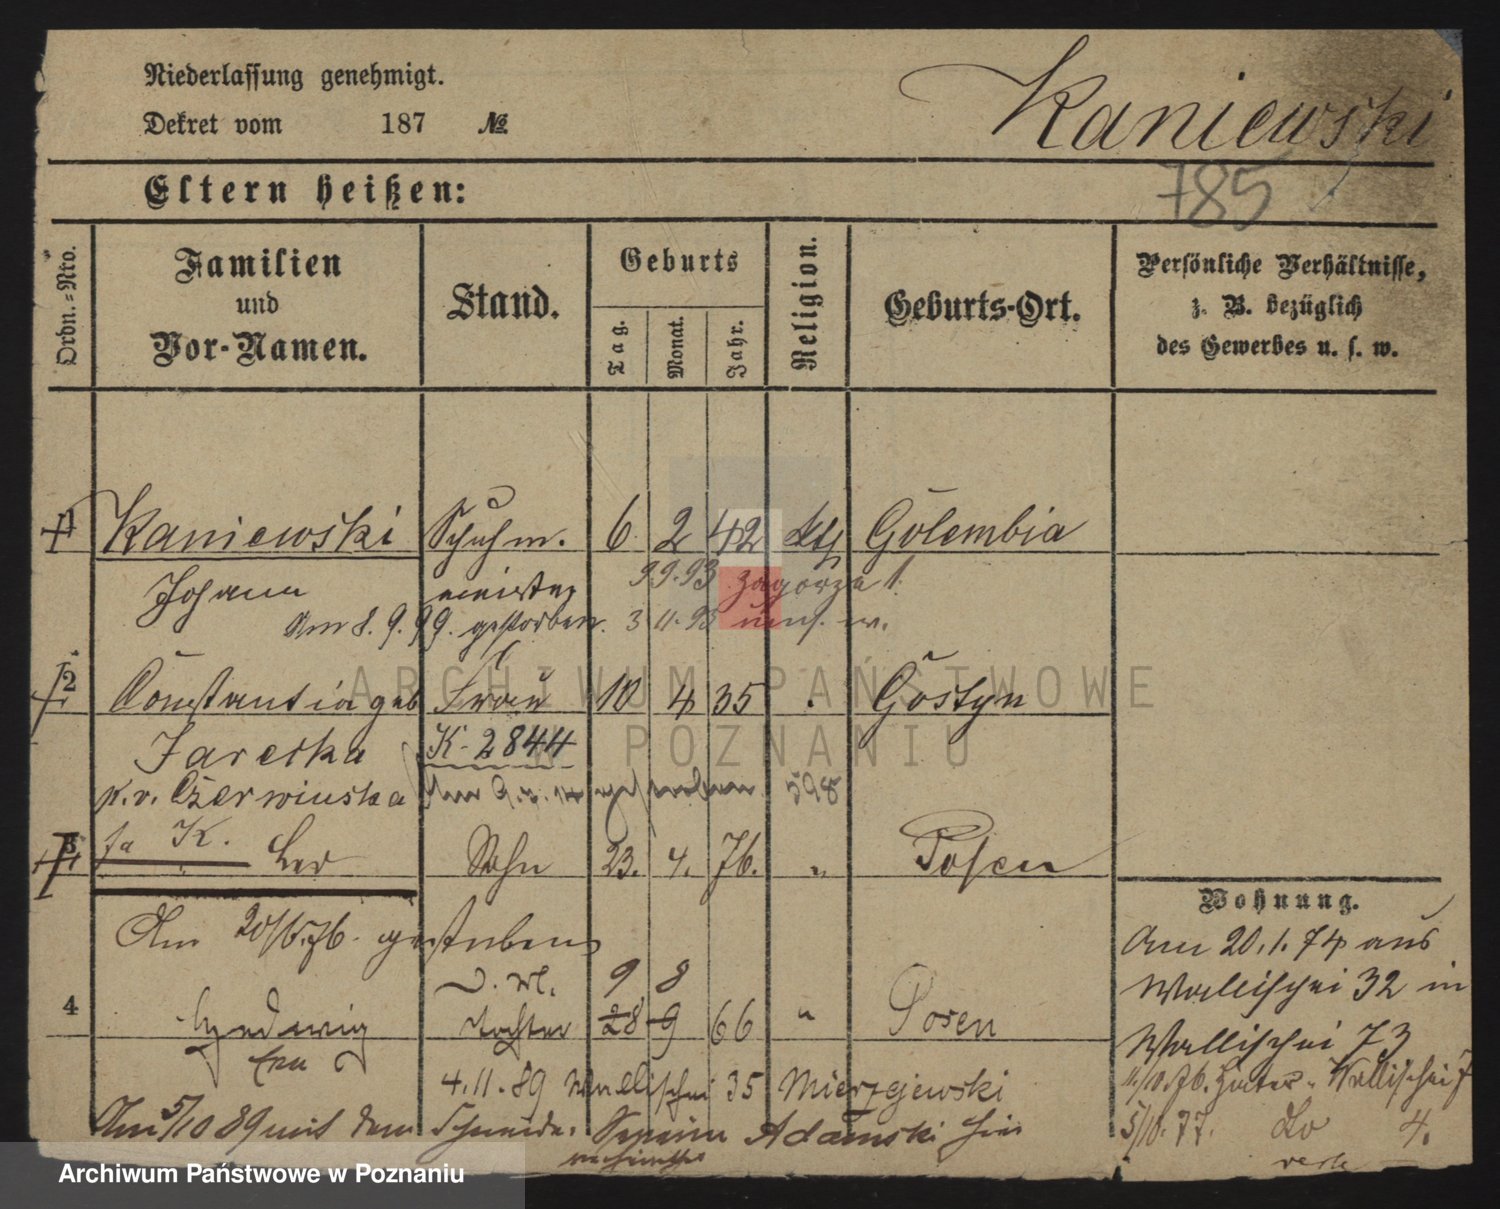 Niederlassung genehmigt.
Kaniewski
Dekret vom 187 №
785
Eltern heißen:
Ordn.-Nro.
Familien und Vor-Namen.
Stand.
Geburts
Tag.
Monat.
Jahr.
Religion.
Geburts-Ort.
Persönliche Verhältnisse,
z. B. bezüglich
des Gewerbes u. s. w.
1 Kaniewski Schuhm. 6 2 42 kth Golembia
Johann meister 99.93 Zagorze 1.
Am 8.9.99. gestorben. 3 11.95
2 Constantia geb Frau 10 4 35 . Gostyn
Jarecka K-2844
p.v. Czerwinska Am gestorben 598
3 fa K. Leo Sohn 23. 4. 76. " Posen
Wohnung.
Am 20/6.76. gestorben
Am 20.1.74 aus
Wallischei 32 in
v. M. 9 8
4 Hedwig Tochter 28 9 66 " Posen
Wallischei 73
11/10.76. Hinter-Wallischei 7
4.11.89 Wallischei 35 Mierzejewski
Am 5/10 89 mit dem Schneider Severin Adamski hier
5/10.77. do 4.
verheirathet